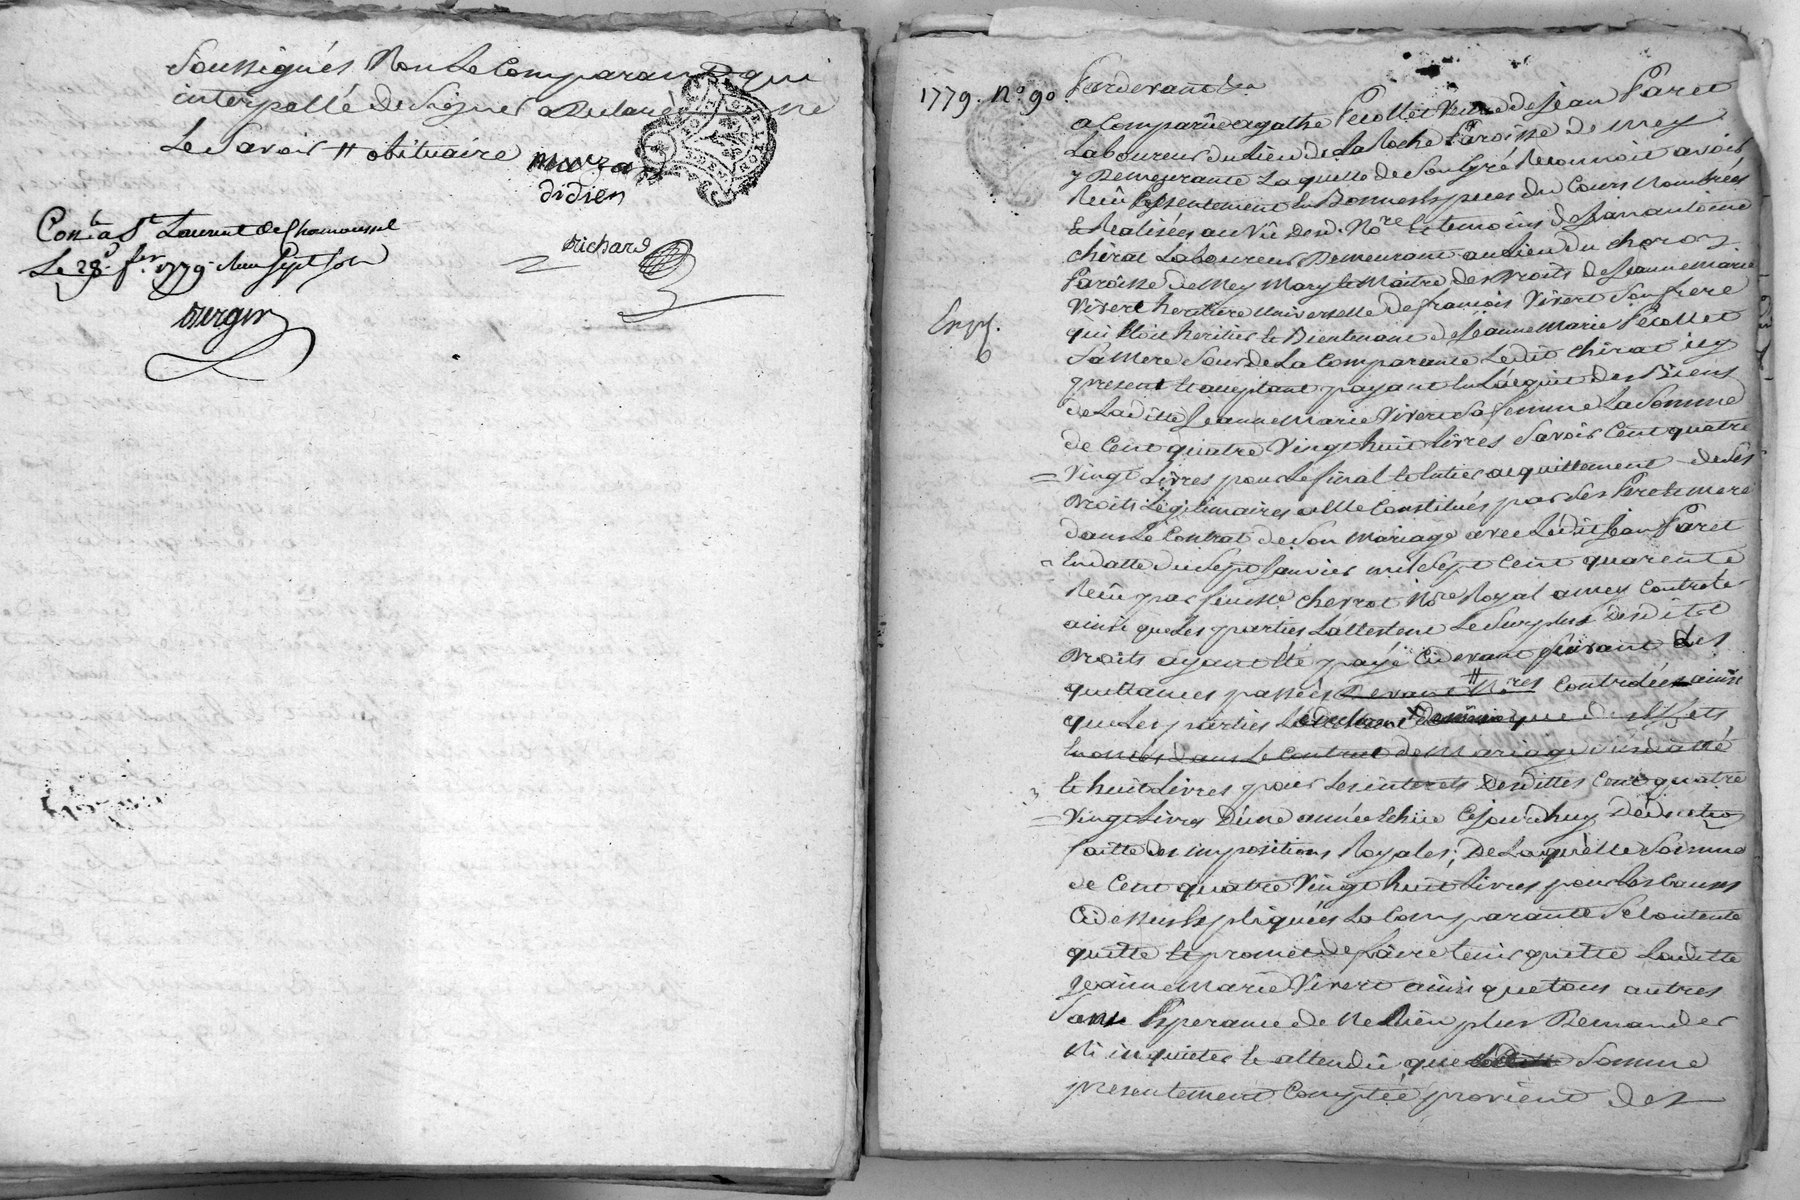 Soussignés Non Le Comparant qui
interpellé de Signer a Declaré ne
Le Savoir # obituaire
didier
Richard
Con.lé a S.t Laurent de Chamousset
Le 28. f.er 1779. Reçu Sept Sols
Durger
1779. N.o 90
Expé.
Pardevant
a Comparû agathe Pecollet Veuve de Jean Paret
Laboureur du Lieu de La Roche Paroisse de Mey
y Demeurante Laquelle de Son gré Reconnoit avoir
Reçu presentement en Bonnes Especes du Cours Nombrées
& Realisées au Vû desd. No.re & temoins de Jean antoine
Chirat Laboureur Demeurant au Lieu du
Paroisse de Mey Mary & Maitre des Droits de Jeanne Marie
Vivert heritiere Universelle de françois Vivert Son frere
qui Etoit heritier & Bientenant de Jeanne Marie Pecollet
Sa Mere Sœur de La Comparante Ledit Chirat icy
present & acceptant payant en L'acquit des Biens
de Laditte Jeanne Marie Vivert Sa femme La Somme
de Cent quatre Vingt huit Livres Savoir Cent quatre
Vingt Livres pour Le final & Entier acquittement de Ses
Droits Légitimaires a Elle Constitués par Ses Pere & Mere
dans Le Contrat de Son Mariage avec Ledit Jean Paret
En datte du Sept Janvier mil Sept Cent quarente
Reçu par feu M.e Cherrot No.re Royal a Mey Controlé
ainsi que Les parties L'attestent Le Surplus desdits
Droits ayant Eté payé Cidevant Suivant Les
quittances passées Devant # No.res Controlées ainsi
que Les parties Le declarent
dans Le Contrat de Mariage
& huit Livres pour Les interets Desdittes Cent quatre
Vingt Livres D'une année Echüe Cejourdhuy Déduction
faitte des impositions Royales; De Laquelle Somme
de Cent quatre Vingt huit Livres pour Les Causes
Cidessus Expliquées La Comparante Se Contente
quitte & promet de faire tenir quitte Laditte
Jeanne Marie Vivert ainsi que tous autres
Sans Esperance de Ne Rien plus Demander
Ni inquieter & attendu que Somme
presentement Comptée provient des